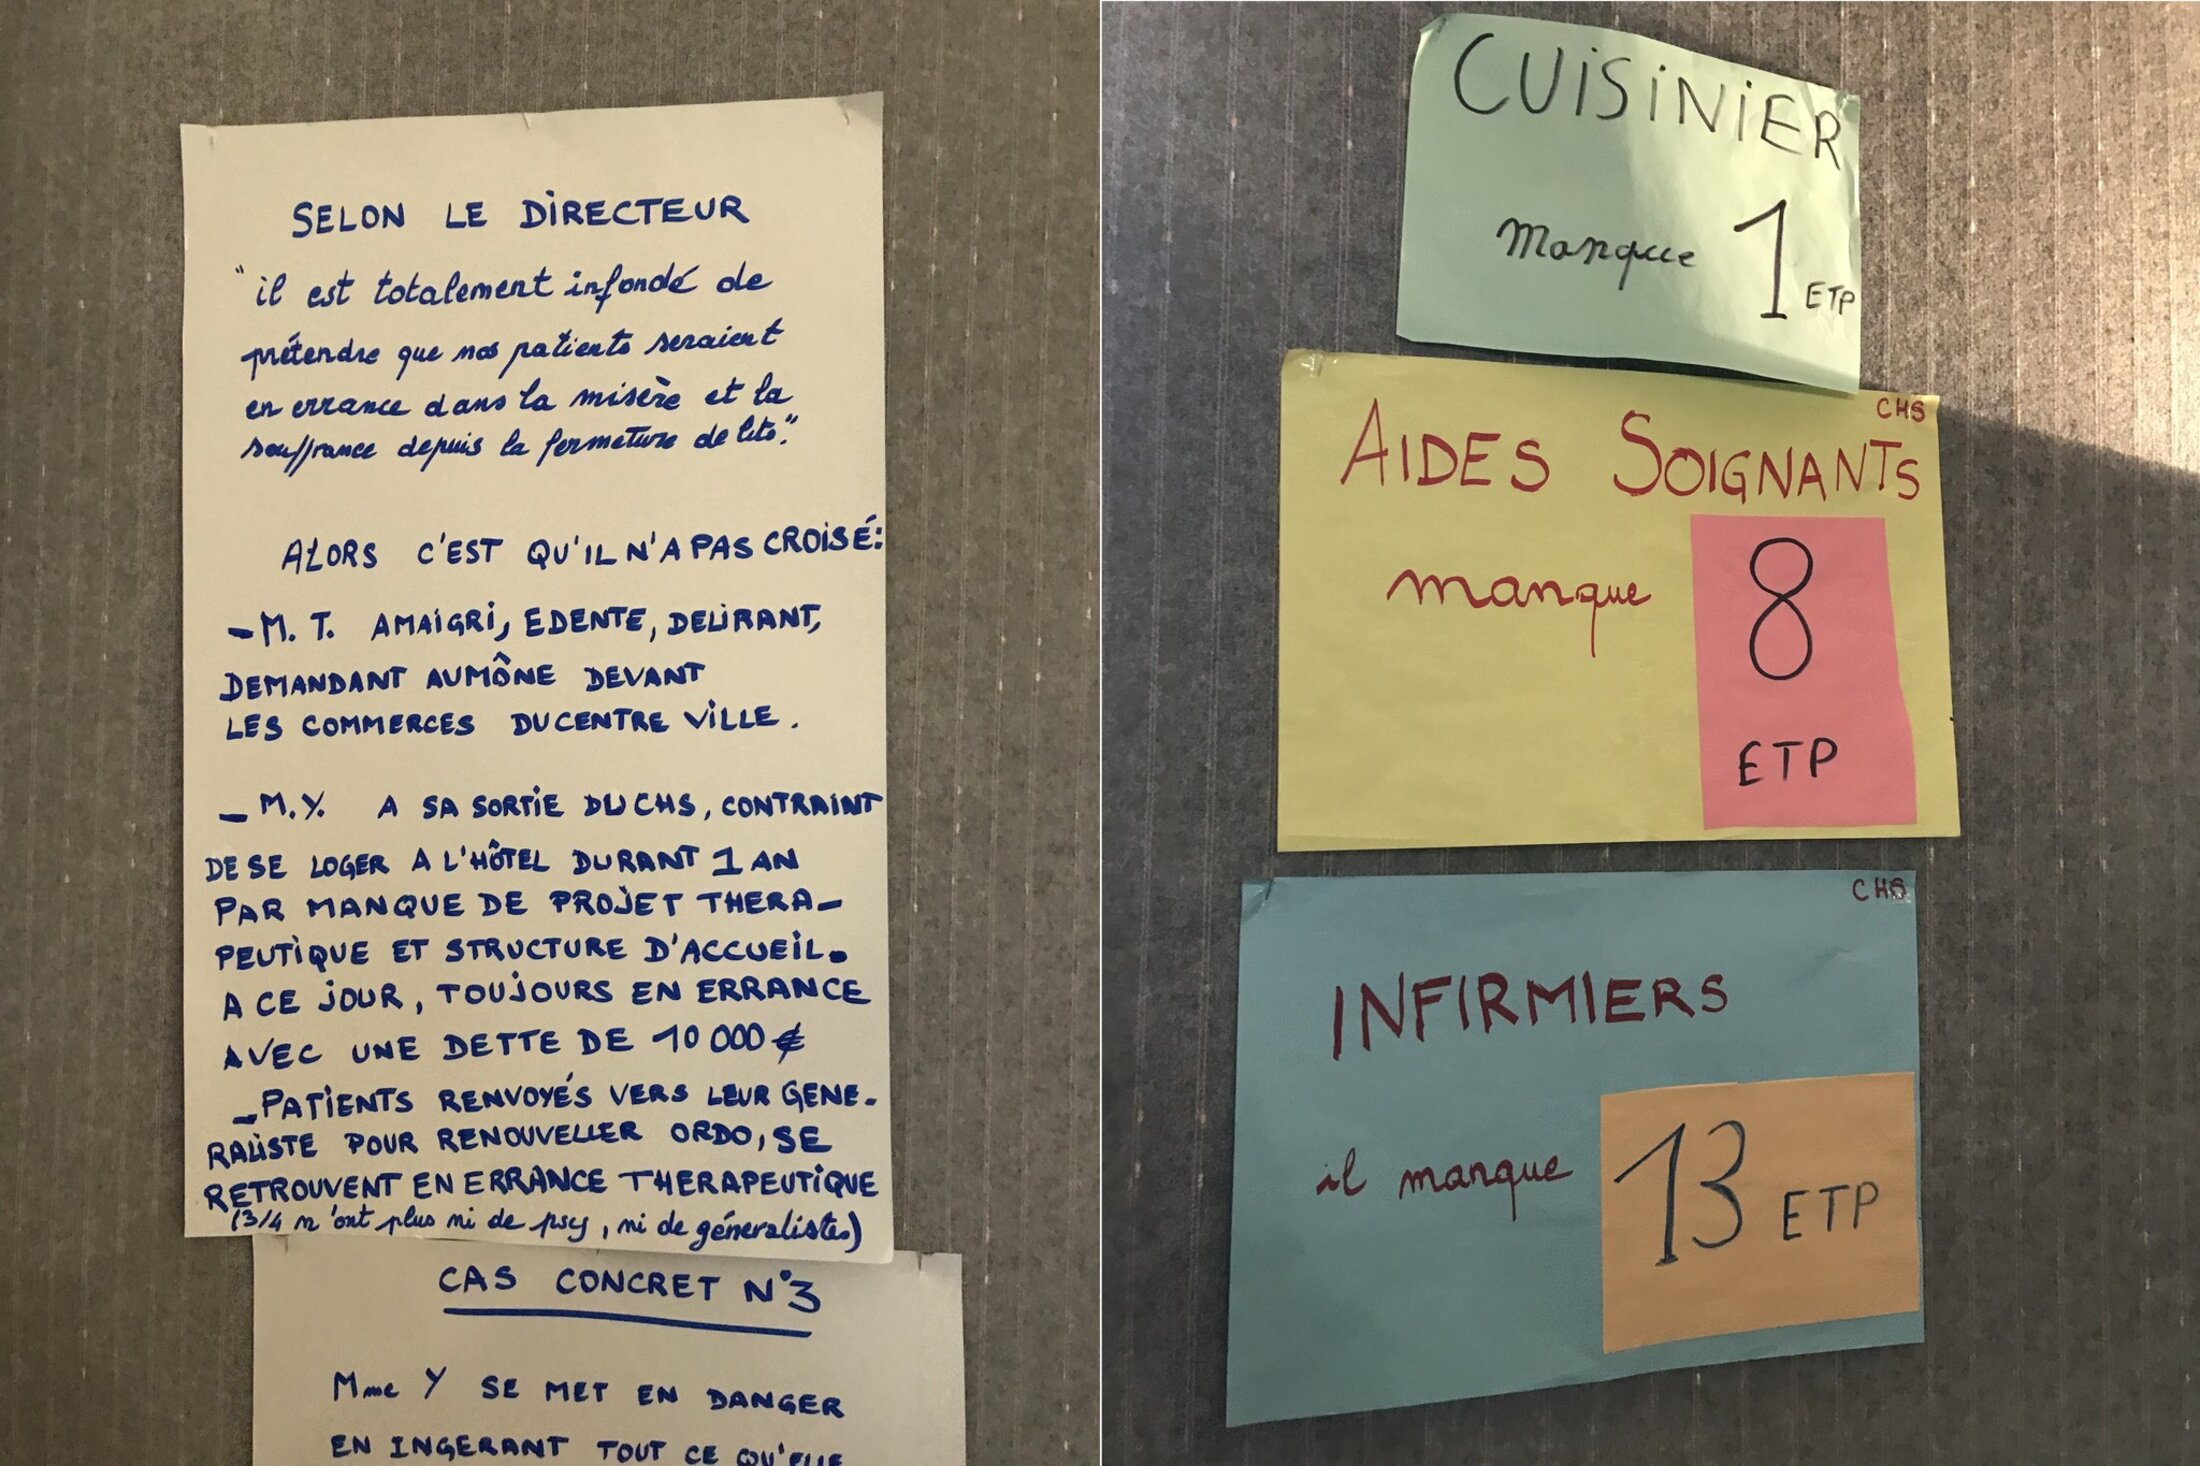 SELON LE DIRECTEUR
"il est totalement infondé de
prétendre que nos patients seraient
en errance dans la misère et la
souffrance depuis la fermeture de lits."
ALORS C'EST QU'IL N'A PAS CROISÉ:
- M. T. AMAIGRI, EDENTE, DELIRANT,
DEMANDANT AUMÔNE DEVANT
LES COMMERCES DU CENTRE VILLE.
- M. Y. A SA SORTIE DU CHS, CONTRAINT
DE SE LOGER A L'HÔTEL DURANT 1 AN
PAR MANQUE DE PROJET THERA-
PEUTIQUE ET STRUCTURE D'ACCUEIL.
A CE JOUR, TOUJOURS EN ERRANCE
AVEC UNE DETTE DE 10 000 €
- PATIENTS RENVOYÉS VERS LEUR GENE-
RALISTE POUR RENOUVELLER ORDO, SE
RETROUVENT EN ERRANCE THERAPEUTIQUE
(3/4 n'ont plus ni de psy, ni de généralistes)
CAS CONCRET N°3
Mme Y SE MET EN DANGER
EN INGERANT TOUT CE QU'ELLE
CUISINIER
manque 1 ETP
CHS
AIDES SOIGNANTS
manque 8
ETP
CHS
INFIRMIERS
il manque 13 ETP